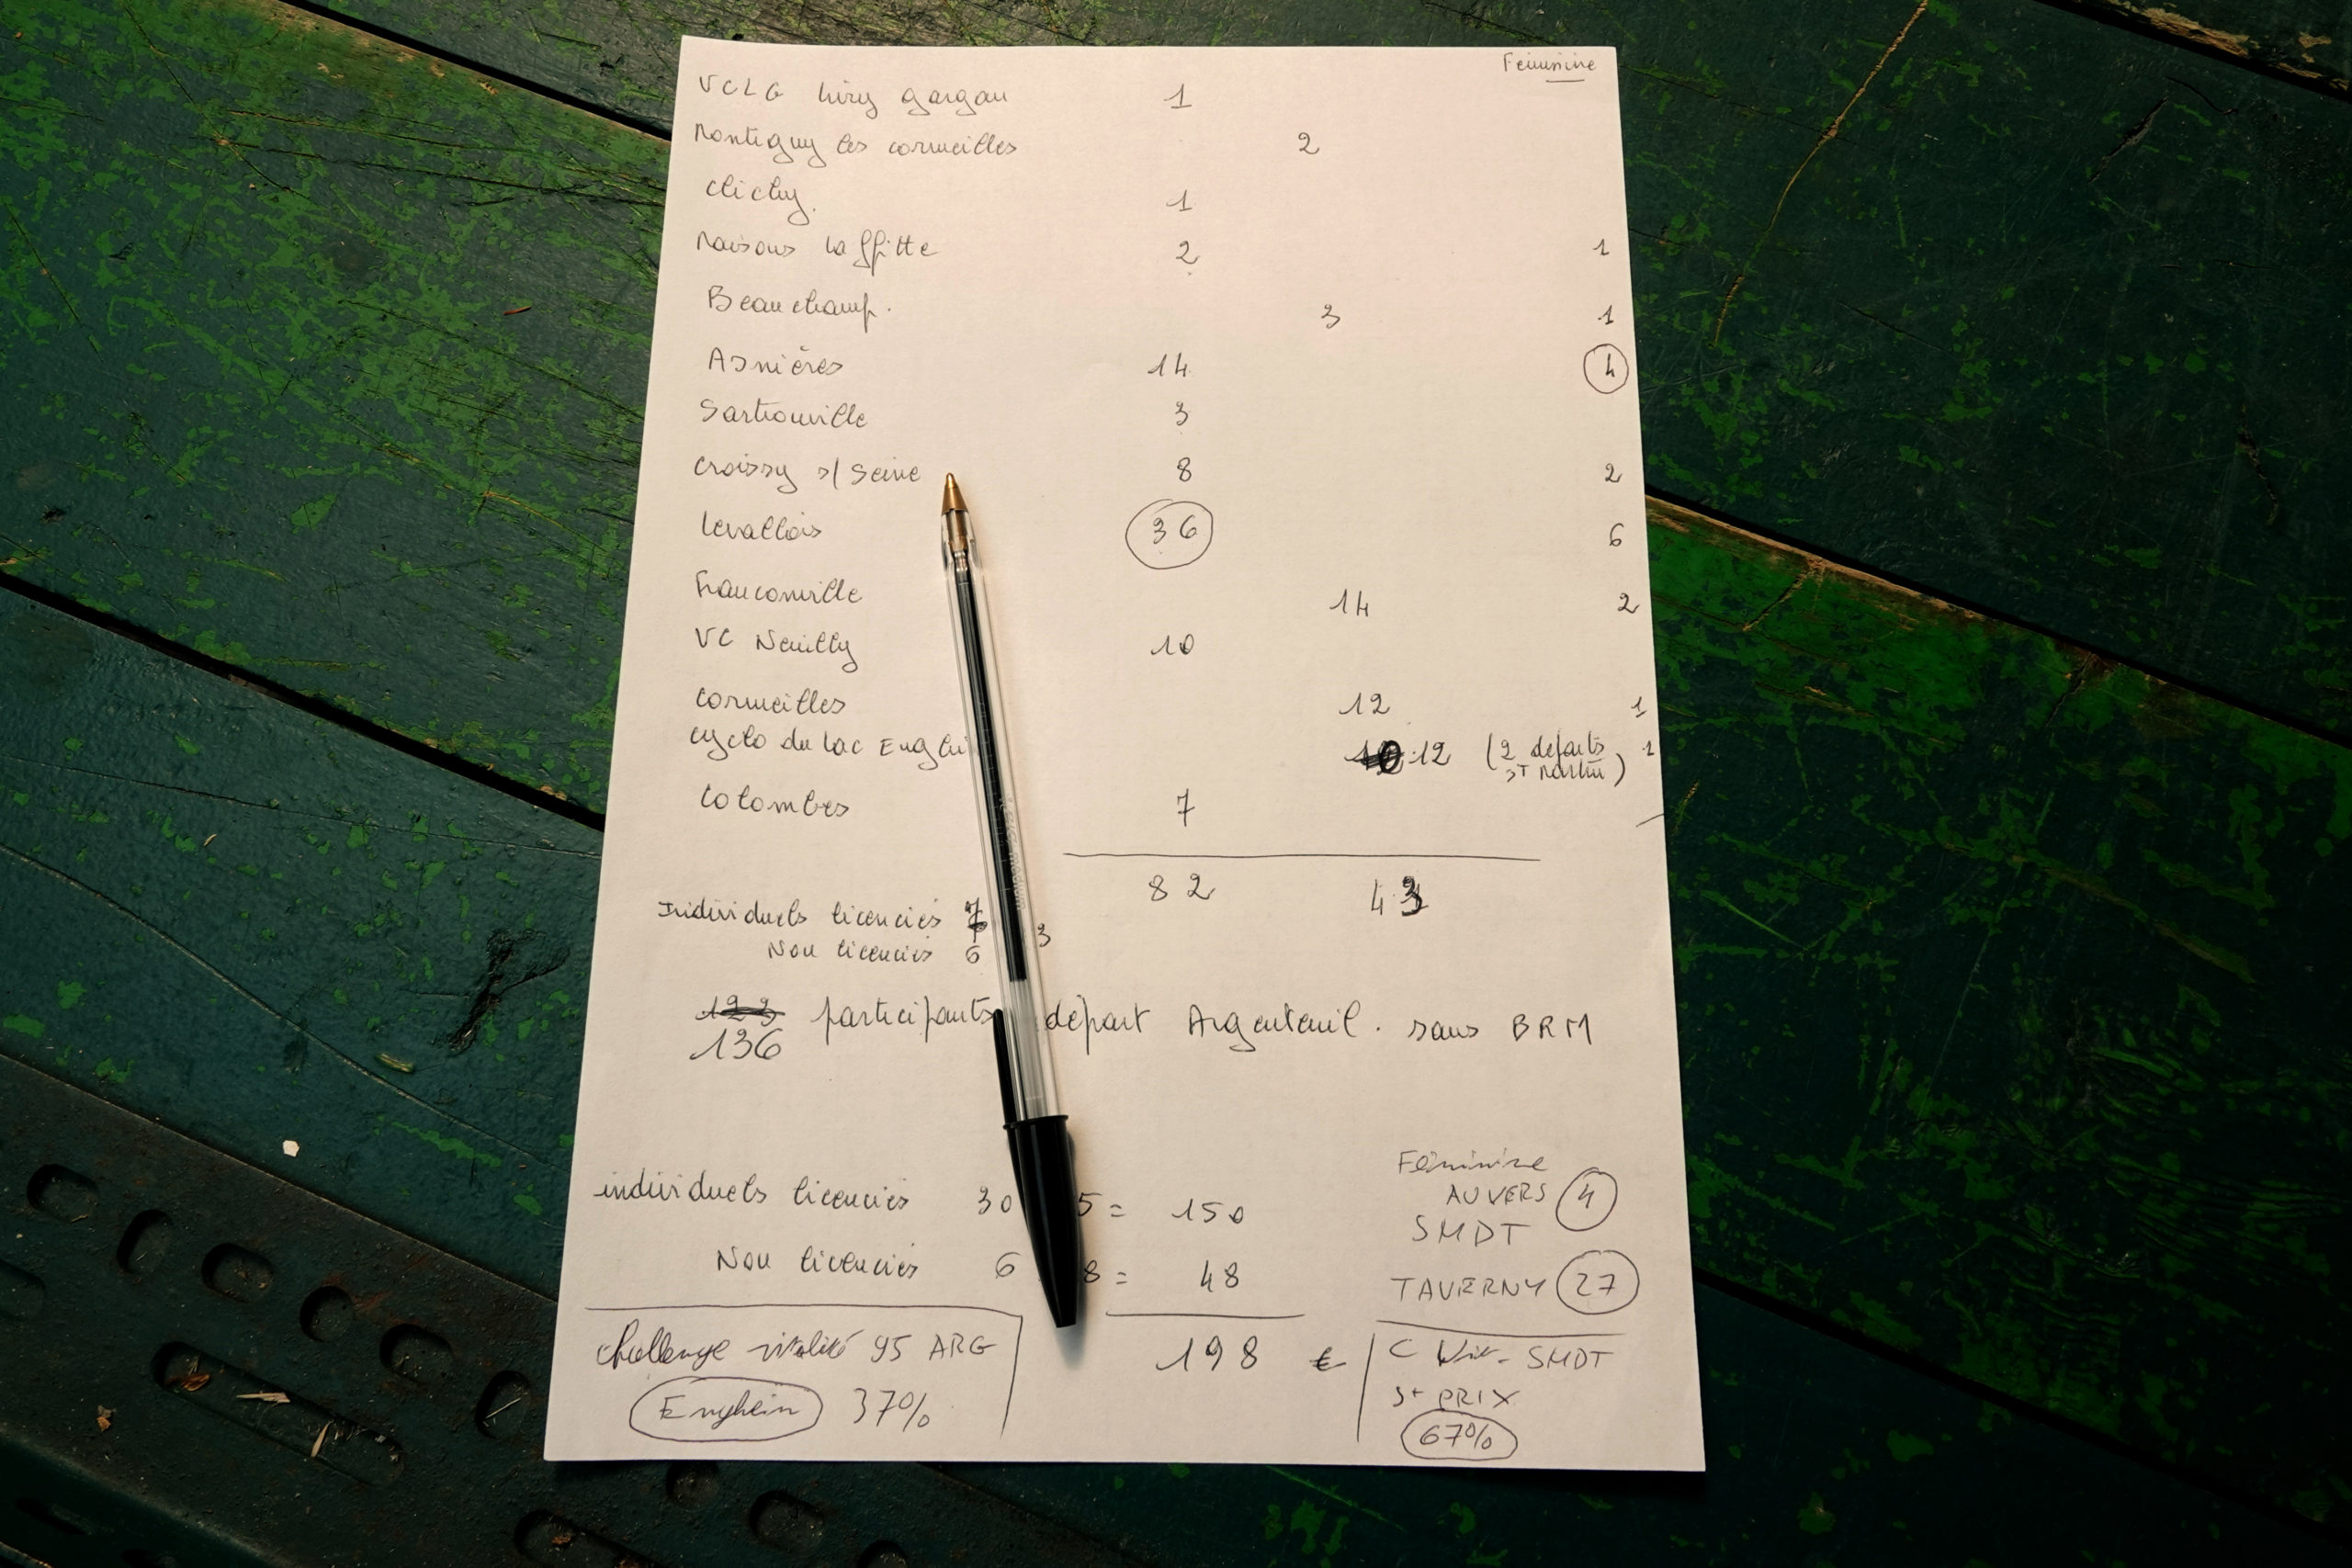 Féminine
VCLG livry gargan 1
Montigny les cormeilles 2
Clichy. 1
Maisons laffitte 2 1
Beauchamp. 3 1
Asnières 14 4
Sartrouville 3
Croissy s/ Seine 8 2
Levallois 36 6
Franconville 14 2
VC Neuilly 10
Cormeilles 12 1
cyclo du lac Enghi 12 (2 départs 1
ST Martin)
Colombes 7
82 43
Individuels licenciés 7
3
Non licenciés 6
123 participants départ Argenteuil. sans BRM
136
individuels licenciés 30 5 = 150
Non licenciés 6 8 = 48
198 €
Féminine
AUVERS 4
SMDT
TAVERNY 27
challenge vitalité 95 ARG
Enghein 37%
C SMDT
ST PRIX
67%